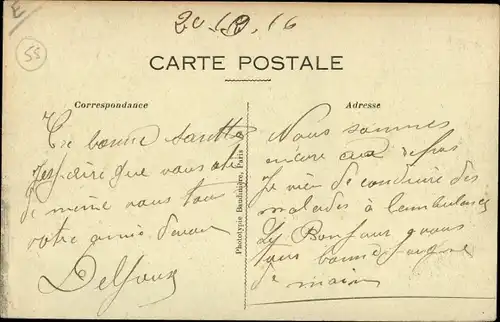 E
55
20-12-16
CARTE POSTALE
Correspondance
bonne santé
j'espaire que vous ate
de maime vous tous
votre amie
Delfour
Phototype Baudinière, Paris
Adresse
Nous sommes
encore au
Je vien de conduire des
malades à l'ambulance
Bonjour a vous
tous bonne
de main